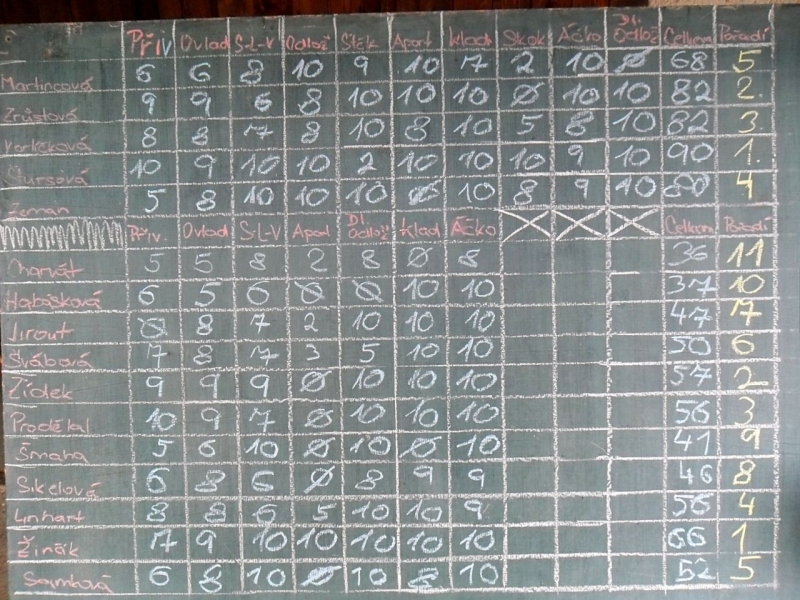 Přiv Ovlad S-L-V Odlož Štěk Aport klad Skok Áčko Dl. odlož Celkem Pořadí
Martincová 6 6 8 10 9 10 7 2 10 0 68 5
Zrůstová 9 9 6 8 10 10 10 0 10 10 82 2.
8 8 7 8 10 8 10 5 8 10 82 3
Šursová 10 9 10 10 2 10 10 10 9 10 90 1.
Zeman 5 8 10 10 10 0 10 8 9 10 80 4
Přiv. Ovlad S-L-V Aport Dl. odlož klad Áčko Celkem Pořadí
Charvát 5 5 8 2 8 0 8 36 11
Habásková 6 5 6 0 0 10 10 37 10
Jirout 0 8 7 2 10 10 10 47 7
Švábová 7 8 7 3 5 10 10 50 6
Zídek 9 9 9 0 10 10 10 57 2
Proděkal 10 9 7 0 10 10 10 56 3
Šmaha 5 6 10 0 10 0 10 41 9
Sikelová 6 8 6 0 8 9 9 46 8
Linhart 8 8 6 5 10 10 9 56 4
Žinčák 7 9 10 10 10 10 10 66 1
6 8 10 0 10 8 10 52 5